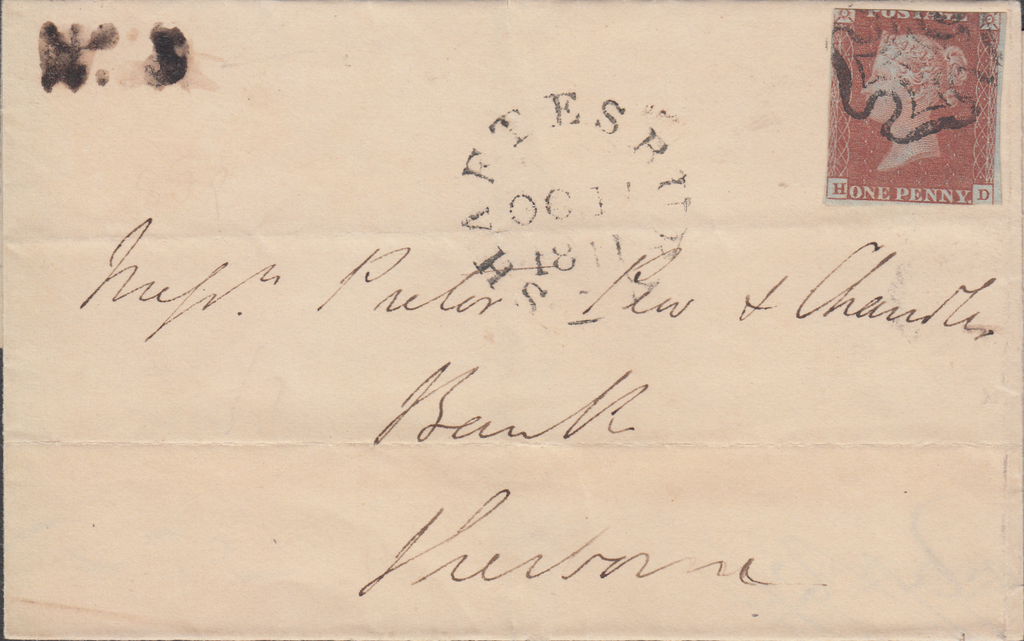 POSTAGE
H ONE PENNY. D
SHAFTESBURY
OC 1
18
Messrs. Pretor Pew & Chandler
Bank
Sherborne